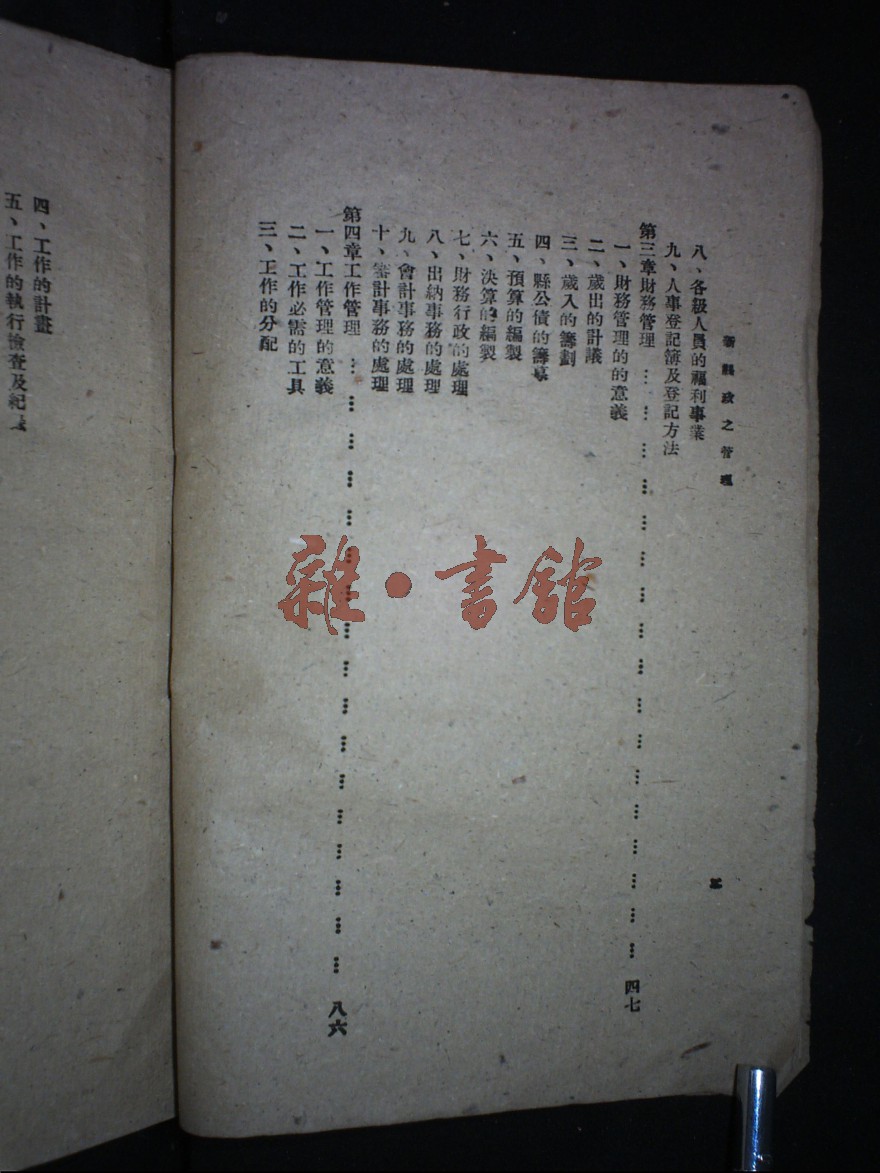 新縣政之管理
八、各級人員的福利事業
九、人事登記簿及登記方法
第三章財務管理 … … … … … … … … … … … … … … … … … 四七
一、財務管理的的意義
二、歲出的計議
三、歲入的籌劃
四、縣公債的籌募
五、預算的編製
六、決算的編製
七、財務行政的處理
八、出納事務的處理
九、會計事務的處理
十、審計事務的處理
第四章工作管理 … … … … … … … … … … … … … … … … … 八六
一、工作管理的意義
二、工作必需的工具
三、工作的分配
四、工作的計畫
五、工作的執行檢查及紀
雜·書館